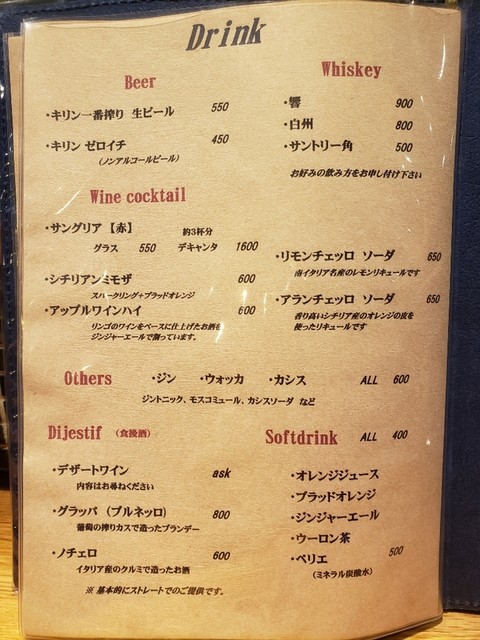 Drink
Beer
・キリン一番搾り 生ビール 550
・キリン ゼロイチ 450
(ノンアルコールビール)
Whiskey
・響 900
・白州 800
・サントリー角 500
お好みの飲み方をお申し付け下さい
Wine cocktail
・サングリア【赤】 約3杯分
グラス 550 デキャンタ 1600
・シチリアンミモザ 600
スパークリング+ブラッドオレンジ
・アップルワインハイ 600
リンゴのワインをベースに仕上げたお酒を
ジンジャーエールで割っています。
・リモンチェッロ ソーダ 650
南イタリア名産のレモンリキュールです
・アランチェッロ ソーダ 650
香り高いシチリア産のオレンジの皮を
使ったリキュールです
Others ・ジン ・ウォッカ ・カシス ALL 600
ジントニック、モスコミュール、カシスソーダ など
Dijestif (食後酒)
・デザートワイン ask
内容はお尋ねください
・グラッパ (ブルネッロ) 800
葡萄の搾りカスで造ったブランデー
・ノチェロ 600
イタリア産のクルミで造ったお酒
※ 基本的にストレートでのご提供です。
Softdrink ALL 400
・オレンジジュース
・ブラッドオレンジ
・ジンジャーエール
・ウーロン茶
・ペリエ 500
(ミネラル炭酸水)